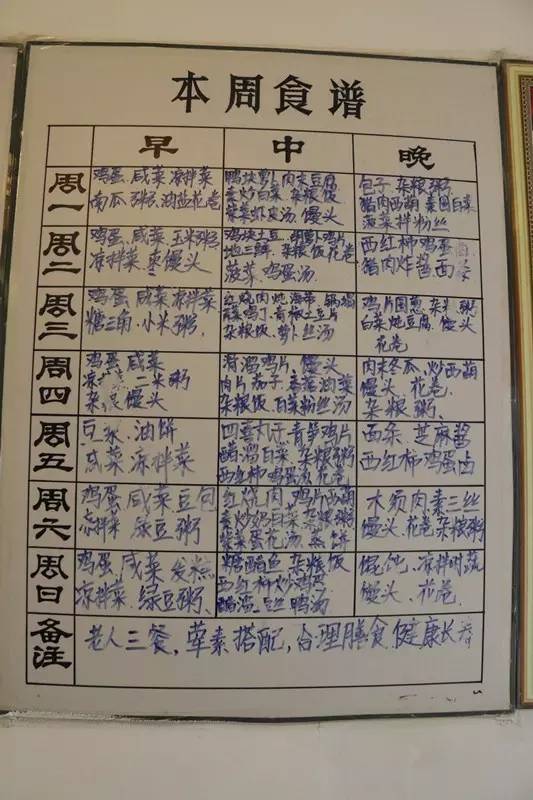 本周食谱
早 中 晚
周一
鸡蛋、咸菜、凉拌菜
南瓜粥、油盐花卷
鸭块萝卜、肉末豆腐
素炒白菜 杂粮饭
紫菜虾皮汤、馒头
包子、杂粮粥
猪肉西葫 素圆白菜
菠菜拌粉丝
周二
鸡蛋、咸菜、玉米粥
凉拌菜 枣馒头
鸡块土豆 鸡片
地三鲜、杂粮饭花卷
菠菜、鸡蛋汤
西红柿鸡蛋
猪肉炸酱面
周三
鸡蛋、咸菜、凉拌菜
糖三角、小米粥、
红烧肉炖海带
鸡丁、青椒土豆片
杂粮饭、萝卜丝汤
鸡片圆葱、杂粮粥
白菜炖豆腐、馒头
花卷
周四
鸡蛋、咸菜
米粥
馒头
滑溜鸡片、馒头
肉片茄子、香菇油菜
杂粮饭、白菜粉丝汤
肉末冬瓜、炒西葫
馒头、花卷、
杂粮粥、
周五
豆浆、油饼
咸菜、凉拌菜
四喜丸子、青笋鸡片
醋溜白菜、杂粮粥
西红柿鸡蛋汤花卷
面条、芝麻酱
西红柿鸡蛋卤
周六
鸡蛋、咸菜豆包
凉拌菜、绿豆粥
红烧肉、鸡片西葫
素炒奶白菜、杂粮粥
紫菜蛋花汤、蒸饼
木须肉素三丝
馒头、花卷杂粮粥
周日
鸡蛋、咸菜、发糕
凉拌菜、绿豆粥、
糖醋鱼、杂粮饭
西红柿炒鸡蛋
醋溜 丝鸭汤
馄饨、凉拌时蔬
馒头、花卷、
备注
老人三餐,荤素搭配,合理膳食健康长寿